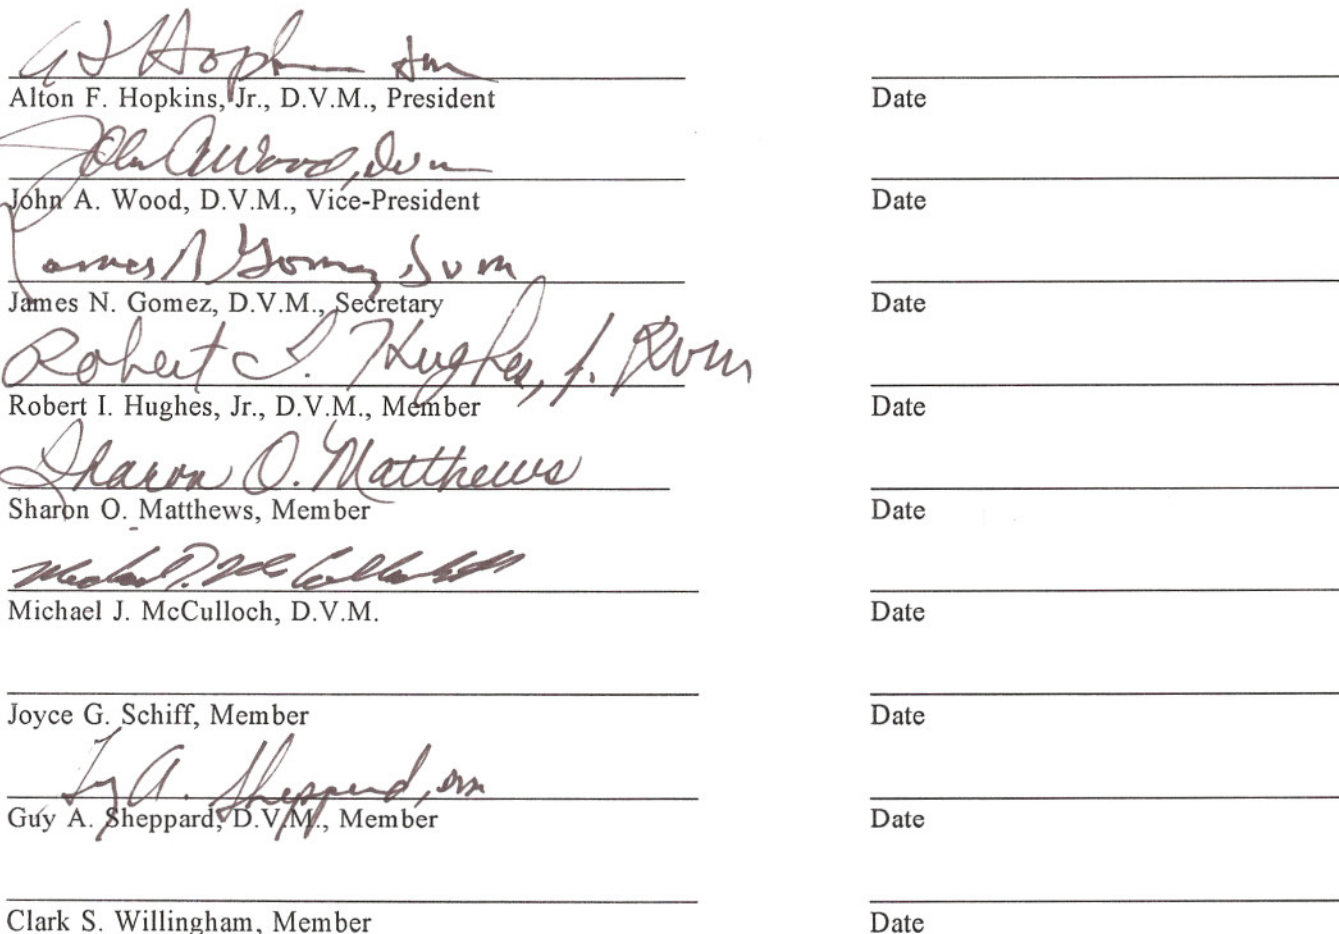 A F Hopkins DVM
Alton F. Hopkins, Jr., D.V.M., President Date
John A Wood, DVM
John A. Wood, D.V.M., Vice-President Date
James N Gomez, DVM
James N. Gomez, D.V.M., Secretary Date
Robert I. Hughes, Jr. DVM
Robert I. Hughes, Jr., D.V.M., Member Date
Sharon O. Matthews
Sharon O. Matthews, Member Date
Michael J. McCulloch
Michael J. McCulloch, D.V.M. Date
Joyce G. Schiff, Member Date
Guy A. Sheppard, DVM
Guy A. Sheppard, D.V.M., Member Date
Clark S. Willingham, Member Date